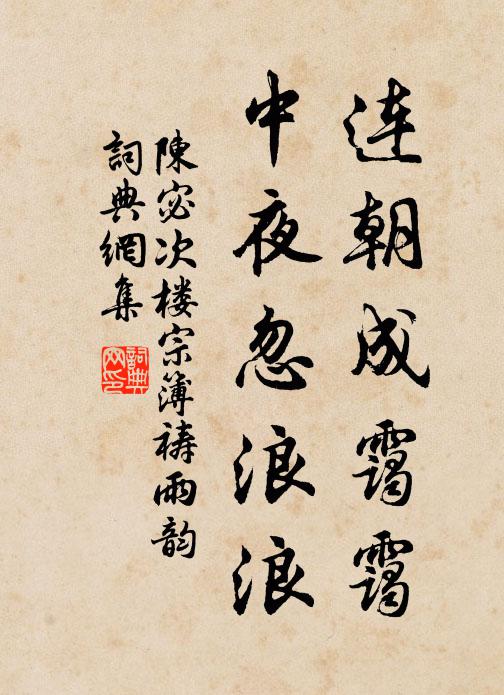 连朝成霭霭
中夜忽浪浪
陳宓次楼宗簿祷雨韵
詞典網集
詞典网印